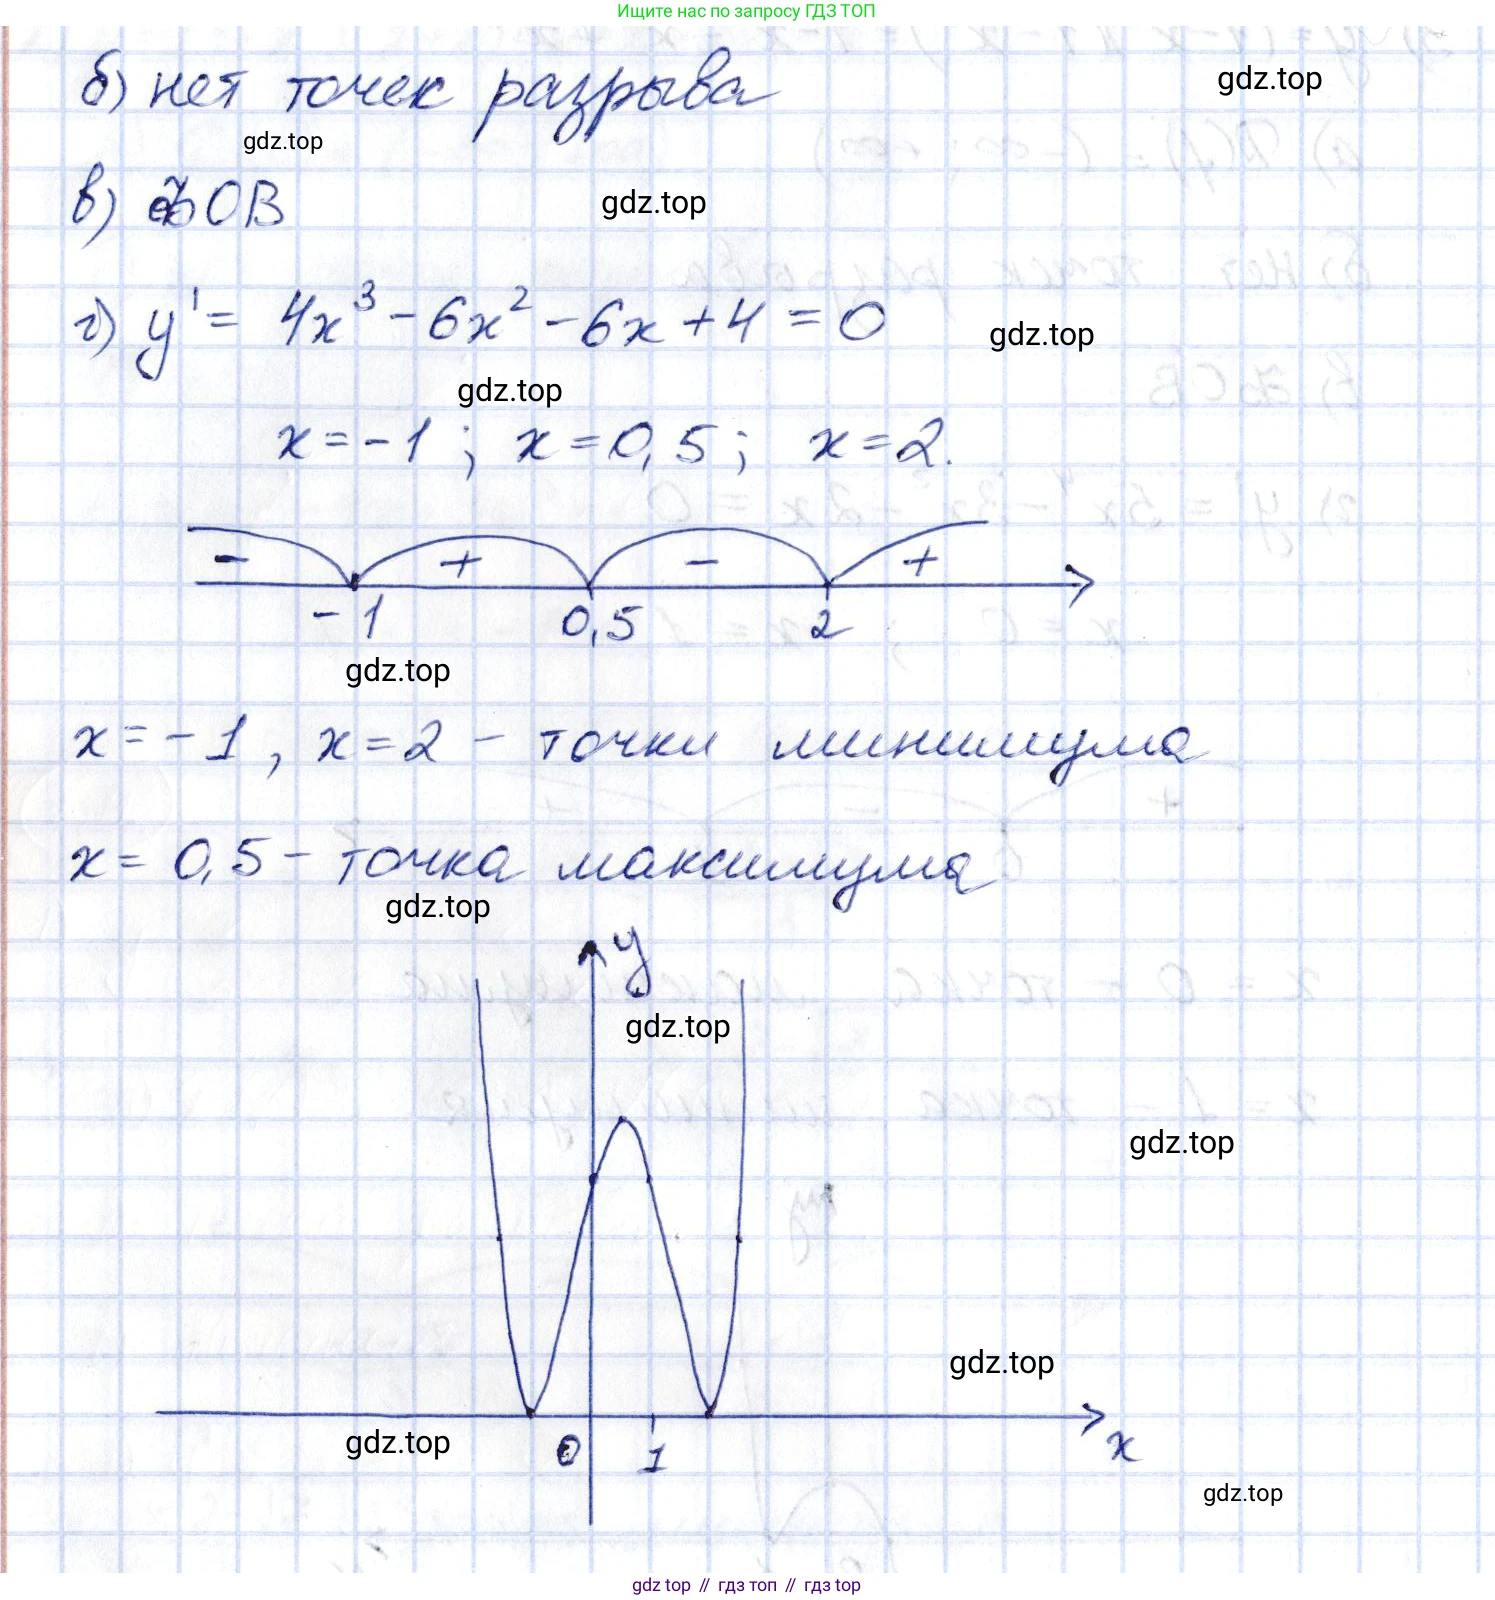 Ищите нас по запросу ГДЗ ТОП
б) нет точек разрыва
gdz.top
gdz.top
в) ФОВ
gdz.top
г) y' = 4x³ - 6x² - 6x + 4 = 0
gdz.top
gdz.top
x = -1 ; x = 0,5 ; x = 2.
- + - +
-1 0,5 2
gdz.top
x = -1 , x = 2 - точки минимума
x = 0,5 - точка максимума
gdz.top
y
gdz.top
gdz.top
gdz.top
gdz.top
0 1 x
gdz.top
gdz top // гдз топ // гдз top